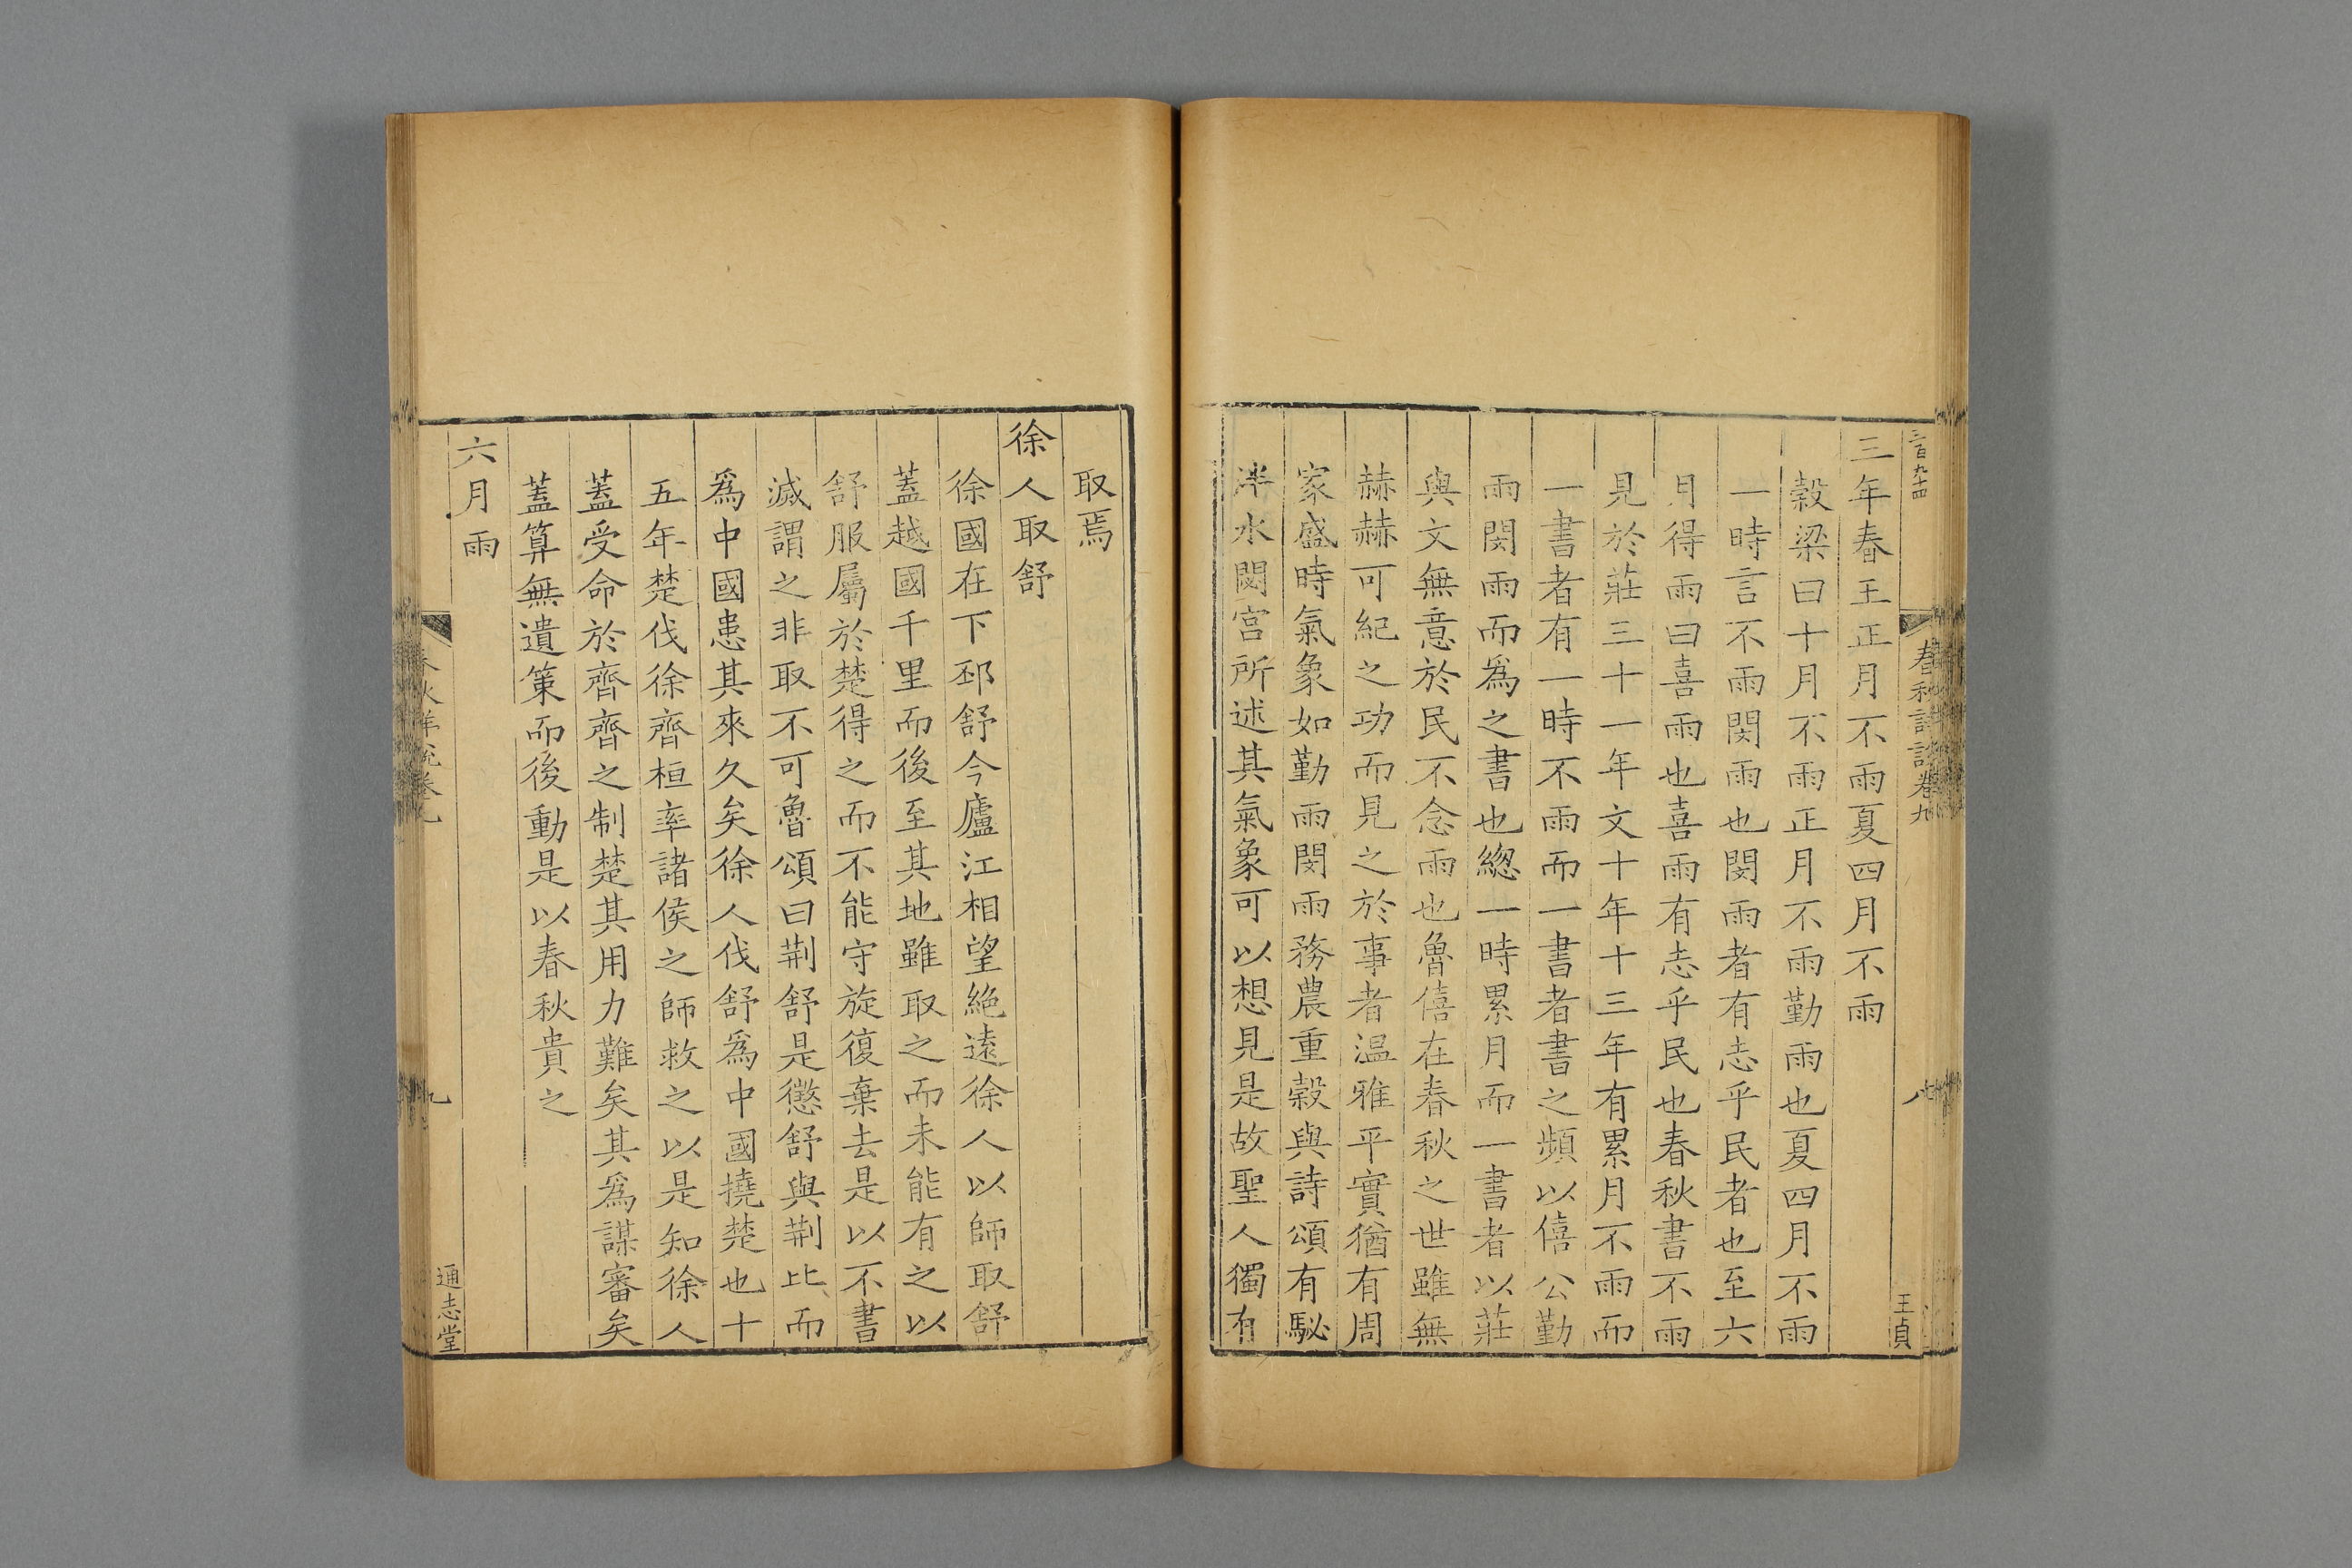 三百九十四
春秋詳說卷九
八
王貞
三年春王正月不雨夏四月不雨
穀梁曰十月不雨正月不雨勤雨也夏四月不雨
一時言不雨閔雨也閔雨者有志乎民者也至六
月得雨曰喜雨也喜雨有志乎民也春秋書不雨
見於莊三十一年文十年十三年有累月不雨而
一書者有一時不雨而一書者書之頻以僖公勤
雨閔雨而爲之書也緫一時累月而一書者以莊
與文無意於民不念雨也魯僖在春秋之世雖無
赫赫可紀之功而見之於事者温雅平實猶有周
家盛時氣象如勤雨閔雨務農重穀與詩頌有駜
泮水閟宮所述其氣象可以想見是故聖人獨有
取焉
徐人取舒
徐國在下邳舒今廬江相望絶遠徐人以師取舒
蓋越國千里而後至其地雖取之而未能有之以
舒服屬於楚得之而不能守旋復棄去是以不書
滅謂之非取不可魯頌曰荆舒是懲舒與荆比而
爲中國患其來久矣徐人伐舒爲中國撓楚也十
五年楚伐徐齊桓率諸侯之師救之以是知徐人
蓋受命於齊齊之制楚其用力難矣其爲謀審矣
蓋算無遺策而後動是以春秋貴之
六月雨
春秋詳說卷九
九
通志堂